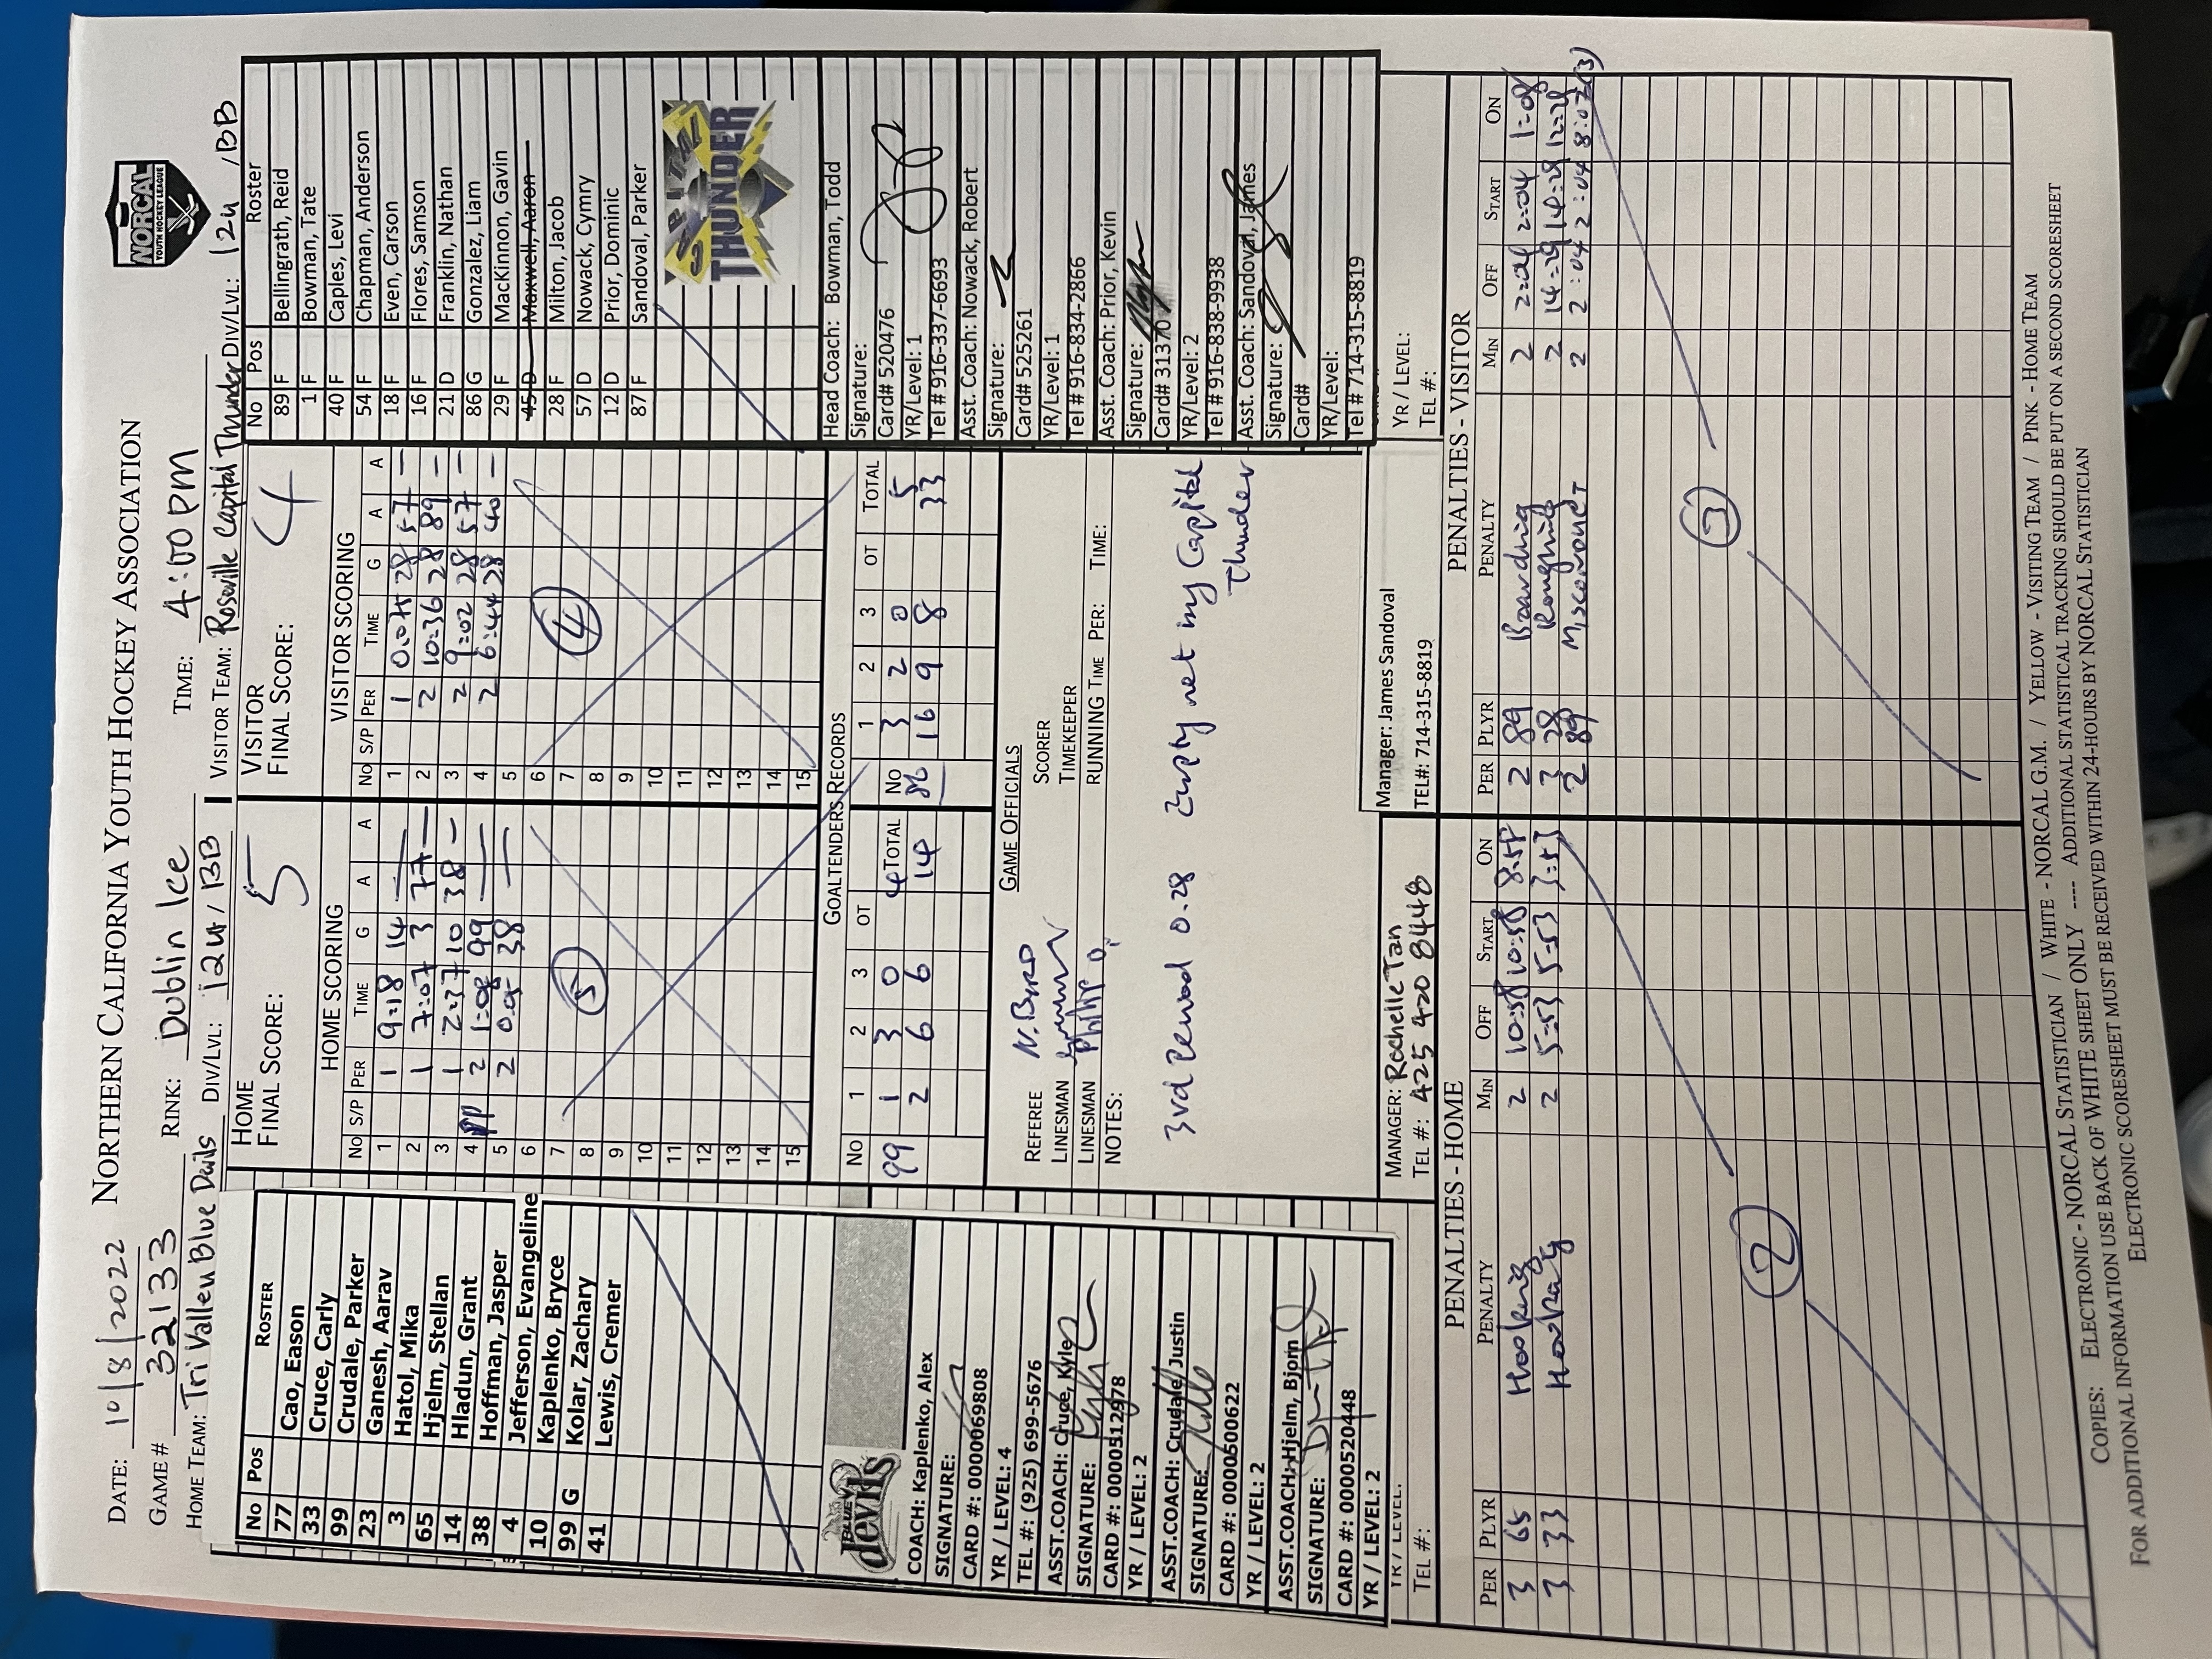 NORTHERN CALIFORNIA YOUTH HOCKEY ASSOCIATION
NORCAL
YOUTH HOCKEY LEAGUE
DATE: 10/8/2022
GAME # 32133 RINK: Dublin Ice TIME: 4:00 pm
HOME TEAM: Tri Valley Blue Devils DIV/LVL: 12U / BB VISITOR TEAM: Roseville Capital Thunder DIV/LVL: 12U / BB
No Pos ROSTER
77 Cao, Eason
33 Cruce, Carly
99 Crudale, Parker
23 Ganesh, Aarav
3 Hatol, Mika
65 Hjelm, Stellan
14 Hladun, Grant
38 Hoffman, Jasper
4 Jefferson, Evangeline
10 Kaplenko, Bryce
99 G Kolar, Zachary
41 Lewis, Cremer
BLUE devils
COACH: Kaplenko, Alex
SIGNATURE:
CARD #: 0000069808
YR / LEVEL: 4
TEL #: (925) 699-5676
ASST.COACH: Cruce, Kyle
SIGNATURE:
CARD #: 0000512978
YR / LEVEL: 2
ASST.COACH: Crudale, Justin
SIGNATURE:
CARD #: 0000500622
YR / LEVEL: 2
ASST.COACH: Hjelm, Bjorn
SIGNATURE:
CARD #: 0000520448
YR / LEVEL: 2
YR / LEVEL:
TEL #:
HOME
FINAL SCORE: 5
HOME SCORING
No S/P PER TIME G A A
1 1 9:18 14 — —
2 1 7:07 3 77 —
3 1 2:37 10 38 —
4 PP 2 1:08 99 — —
5 2 38 — —
6
7
8
9
10
11
12
13
14
15
5
VISITOR
FINAL SCORE: 4
VISITOR SCORING
No S/P PER TIME G A A
1 1 28 57 —
2 2 10:36 28 89 —
3 2 9:02 28 57 —
4 2 6:44 28 40 —
5
6
7
8
9
10
11
12
13
14
15
4
GOALTENDERS RECORDS
No 1 2 3 OT TOTAL
99 1 3 0 4
2 6 6 14
No 1 2 3 OT TOTAL
86 3 2 0 5
16 9 8 33
GAME OFFICIALS
REFEREE N. Bird SCORER
LINESMAN TIMEKEEPER
LINESMAN Philip O. RUNNING TIME PER: TIME:
NOTES:
3rd Period 0:28 Empty net my Capital
Thunder
MANAGER: Rochelle Tan
TEL #: 425 420 8448
Manager: James Sandoval
TEL#: 714-315-8819
No Pos Roster
89 F Bellingrath, Reid
1 F Bowman, Tate
40 F Caples, Levi
54 F Chapman, Anderson
18 F Even, Carson
16 F Flores, Samson
21 D Franklin, Nathan
86 G Gonzalez, Liam
29 F MacKinnon, Gavin
45 D Maxwell, Aaron
28 F Milton, Jacob
57 D Nowack, Cymry
12 D Prior, Dominic
87 F Sandoval, Parker
CAPITAL
THUNDER
Head Coach: Bowman, Todd
Signature:
Card# 520476
YR/Level: 1
Tel # 916-337-6693
Asst. Coach: Nowack, Robert
Signature:
Card# 525261
YR/Level: 1
Tel # 916-834-2866
Asst. Coach: Prior, Kevin
Signature:
Card# 31370
YR/Level: 2
Tel # 916-838-9938
Asst. Coach: Sandoval, James
Signature:
Card#
YR/Level:
Tel # 714-315-8819
YR / LEVEL:
TEL #:
PENALTIES - HOME
PER PLYR PENALTY MIN OFF START ON
3 65 Hooking 2 10:58 10:58 8:58
3 33 Hooking 2 5:53 5:53 3:53
2
PENALTIES - VISITOR
PER PLYR PENALTY MIN OFF START ON
2 89 Boarding 2 2:04 2:04 1:08
3 28 Roughing 2 14:29 14:28 12:28
2 89 Misconduct 2 2:04 2:04 8:07 (3)
3
COPIES: ELECTRONIC - NORCAL STATISTICIAN / WHITE - NORCAL G.M. / YELLOW - VISITING TEAM / PINK - HOME TEAM
FOR ADDITIONAL INFORMATION USE BACK OF WHITE SHEET ONLY ---- ADDITIONAL STATISTICAL TRACKING SHOULD BE PUT ON A SECOND SCORESHEET
ELECTRONIC SCORESHEET MUST BE RECEIVED WITHIN 24-HOURS BY NORCAL STATISTICIAN